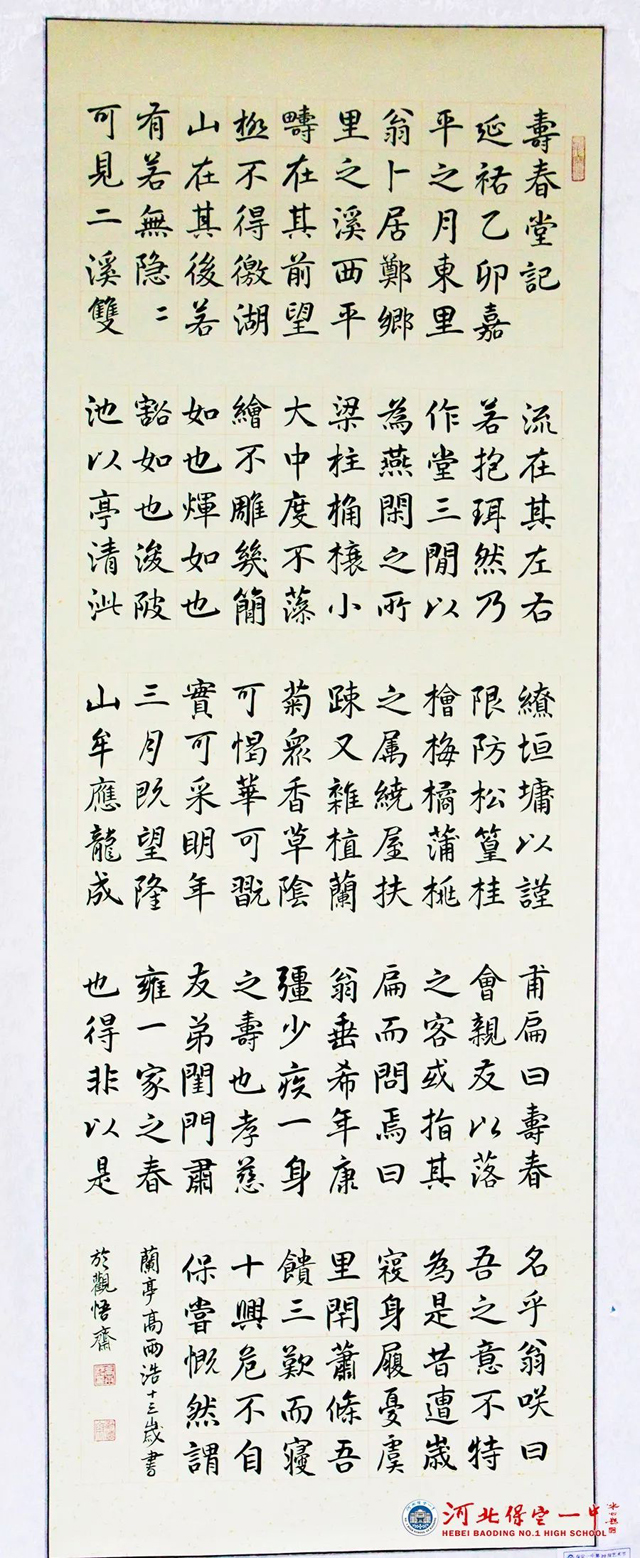 壽春堂記
延祐乙卯嘉
平之月東里
翁卜居鄭鄉
里之溪西平
疇在其前望
極不得徼湖
山在其後若
有若無隐〻
可見二溪雙
流在其左右
若抱珥然乃
作堂三閒以
為燕閑之所
梁柱桷欀小
大中度不藻
繪不雕幾簡
如也煇如也
豁如也浚陂
池以亭清沘
繚垣墉以謹
限防松篁桂
檜梅橘蒲桃
之属繞屋扶
踈又雜植蘭
菊眾香草陰
可愒華可翫
實可采明年
三月既望隆
山牟應龍成
甫扁曰壽春
會親友以落
之客或指其
扁而問焉曰
翁垂希年康
彊少疾一身
之壽也孝慈
友弟閨門肅
雍一家之春
也得非以是
名乎翁咲曰
吾之意不特
為是昔遭歲
祲身履憂虞
里閈蕭條吾
饋三歎而寢
十興危不自
保嘗慨然謂
蘭亭高雨浩十三歲書
於觀悟齋
河北保定一中
HEBEI BAODING NO.1 HIGH SCHOOL